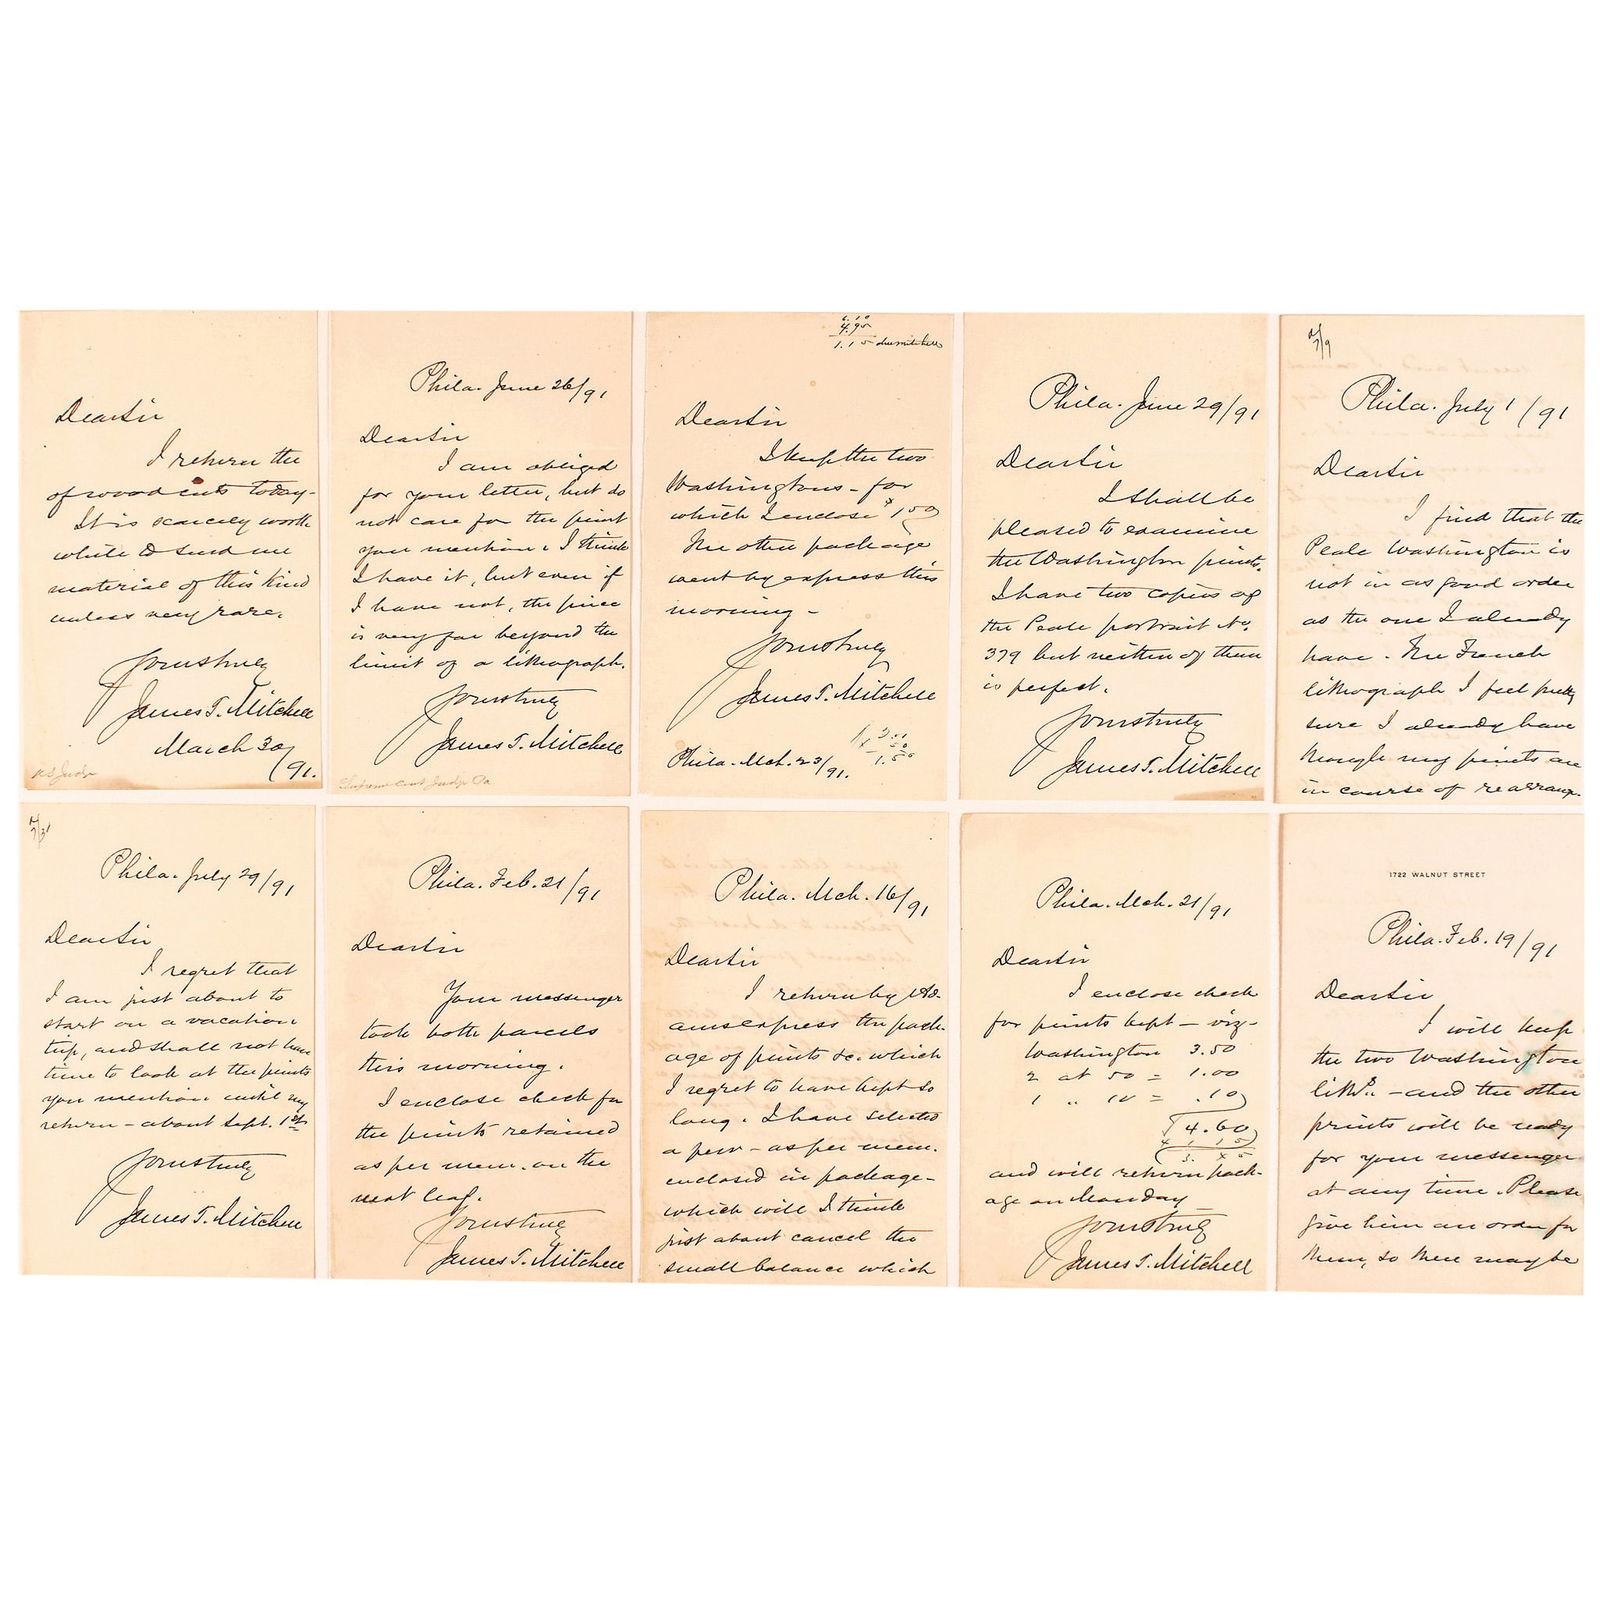 Dear Sir
I return the
of wood cuts today -
It is scarcely worth
while to send me
material of this kind
unless very rare.
Yours truly
James T. Mitchell
March 30
/91.
Phila. June 26/91
Dear Sir
I am obliged
for your letter, but do
not care for the print
you mention. I think
I have it, but even if
I have not, the price
is very far beyond the
limit of a lithograph.
Yours truly
James T. Mitchell
Supreme Court Judge Pa
4.95
1.15 due mitchell
Dear Sir
I keep the two
Washingtons - for
which I enclose $1.50
The other package
went by express this
morning -
Yours truly
James T. Mitchell
Phila. Mch. 23/91.
Phila. June 29/91
Dear Sir
I shall be
pleased to examine
the Washington prints.
I have two copies of
the Peale portrait No.
379 but neither of them
is perfect.
Yours truly
James T. Mitchell
Phila. July 1/91
Dear Sir
I find that the
Peale Washington is
not in as good order
as the one I already
have. The French
lithograph I feel pretty
sure I already have
though my prints are
in course of rearrang-
Phila. July 29/91
Dear Sir
I regret that
I am just about to
start on a vacation
trip, and shall not have
time to look at the prints
you mention until my
return - about Sept. 1st
Yours truly
James T. Mitchell
Phila. Feb. 21/91
Dear Sir
Your messenger
took both parcels
this morning.
I enclose check for
the prints retained
as per mem. on the
next leaf.
Yours truly
James T. Mitchell
Phila. Mch. 16/91
Dear Sir
I return by Ad-
ams express the pack-
age of prints &c. which
I regret to have kept so
long. I have selected
a few - as per mem.
enclosed in package -
which will I think
just about cancel the
small balance which
Phila. Mch. 21/91
Dear Sir
I enclose check
for prints kept - viz -
Washington 3.50
2 at 50 = 1.00
1 " 10 = .10
4.60
and will return pack-
age on Monday
Yours truly
James T. Mitchell
1722 WALNUT STREET
Phila. Feb. 19/91
Dear Sir
I will keep
the two Washington
liths. - and the other
prints will be ready
for your messenger
at any time. Please
give him an order for
them, so there may be